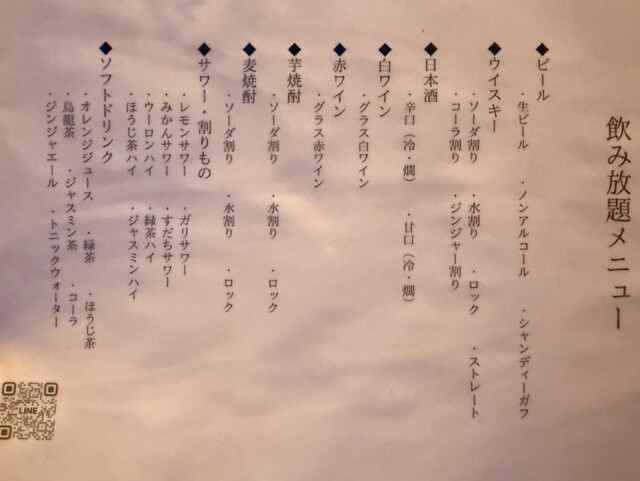 飲み放題メニュー
◆ビール
・生ビール ・ノンアルコール ・シャンディーガフ
◆ウイスキー
・ソーダ割り ・水割り ・ロック ・ストレート
・コーラ割り ・ジンジャー割り
◆日本酒
・辛口（冷・燗） ・甘口（冷・燗）
◆白ワイン
・グラス白ワイン
◆赤ワイン
・グラス赤ワイン
◆芋焼酎
・ソーダ割り ・水割り ・ロック
◆麦焼酎
・ソーダ割り ・水割り ・ロック
◆サワー・割りもの
・レモンサワー ・ガリサワー
・みかんサワー ・すだちサワー
・ウーロンハイ ・緑茶ハイ
・ほうじ茶ハイ ・ジャスミンハイ
◆ソフトドリンク
・オレンジジュース ・緑茶 ・ほうじ茶
・烏龍茶 ・ジャスミン茶 ・コーラ
・ジンジャエール ・トニックウォーター
LINE